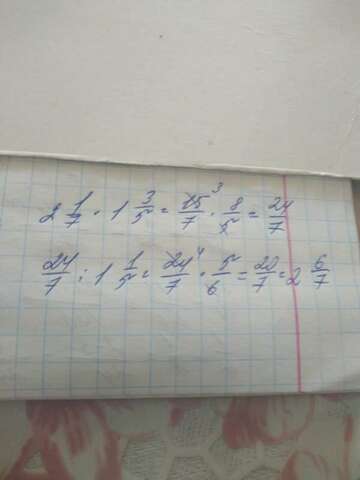 2 1/7 · 1 3/5 = 15/7 ³ · 8/5 = 24/7
24/7 : 1 1/5 = 24/7 ⁴ · 5/6 = 20/7 = 2 6/7